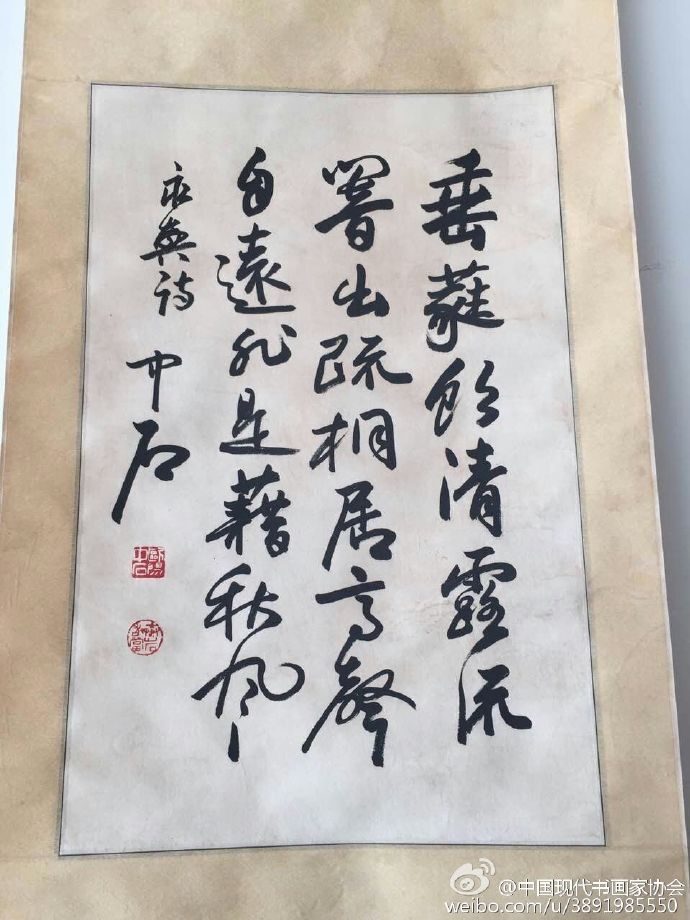 垂蕤飲清露流
響出疏桐居高聲
自遠非是藉秋風
永興詩 中石
歐陽中石
@中国现代书画家协会
weibo.com/u/3891985550